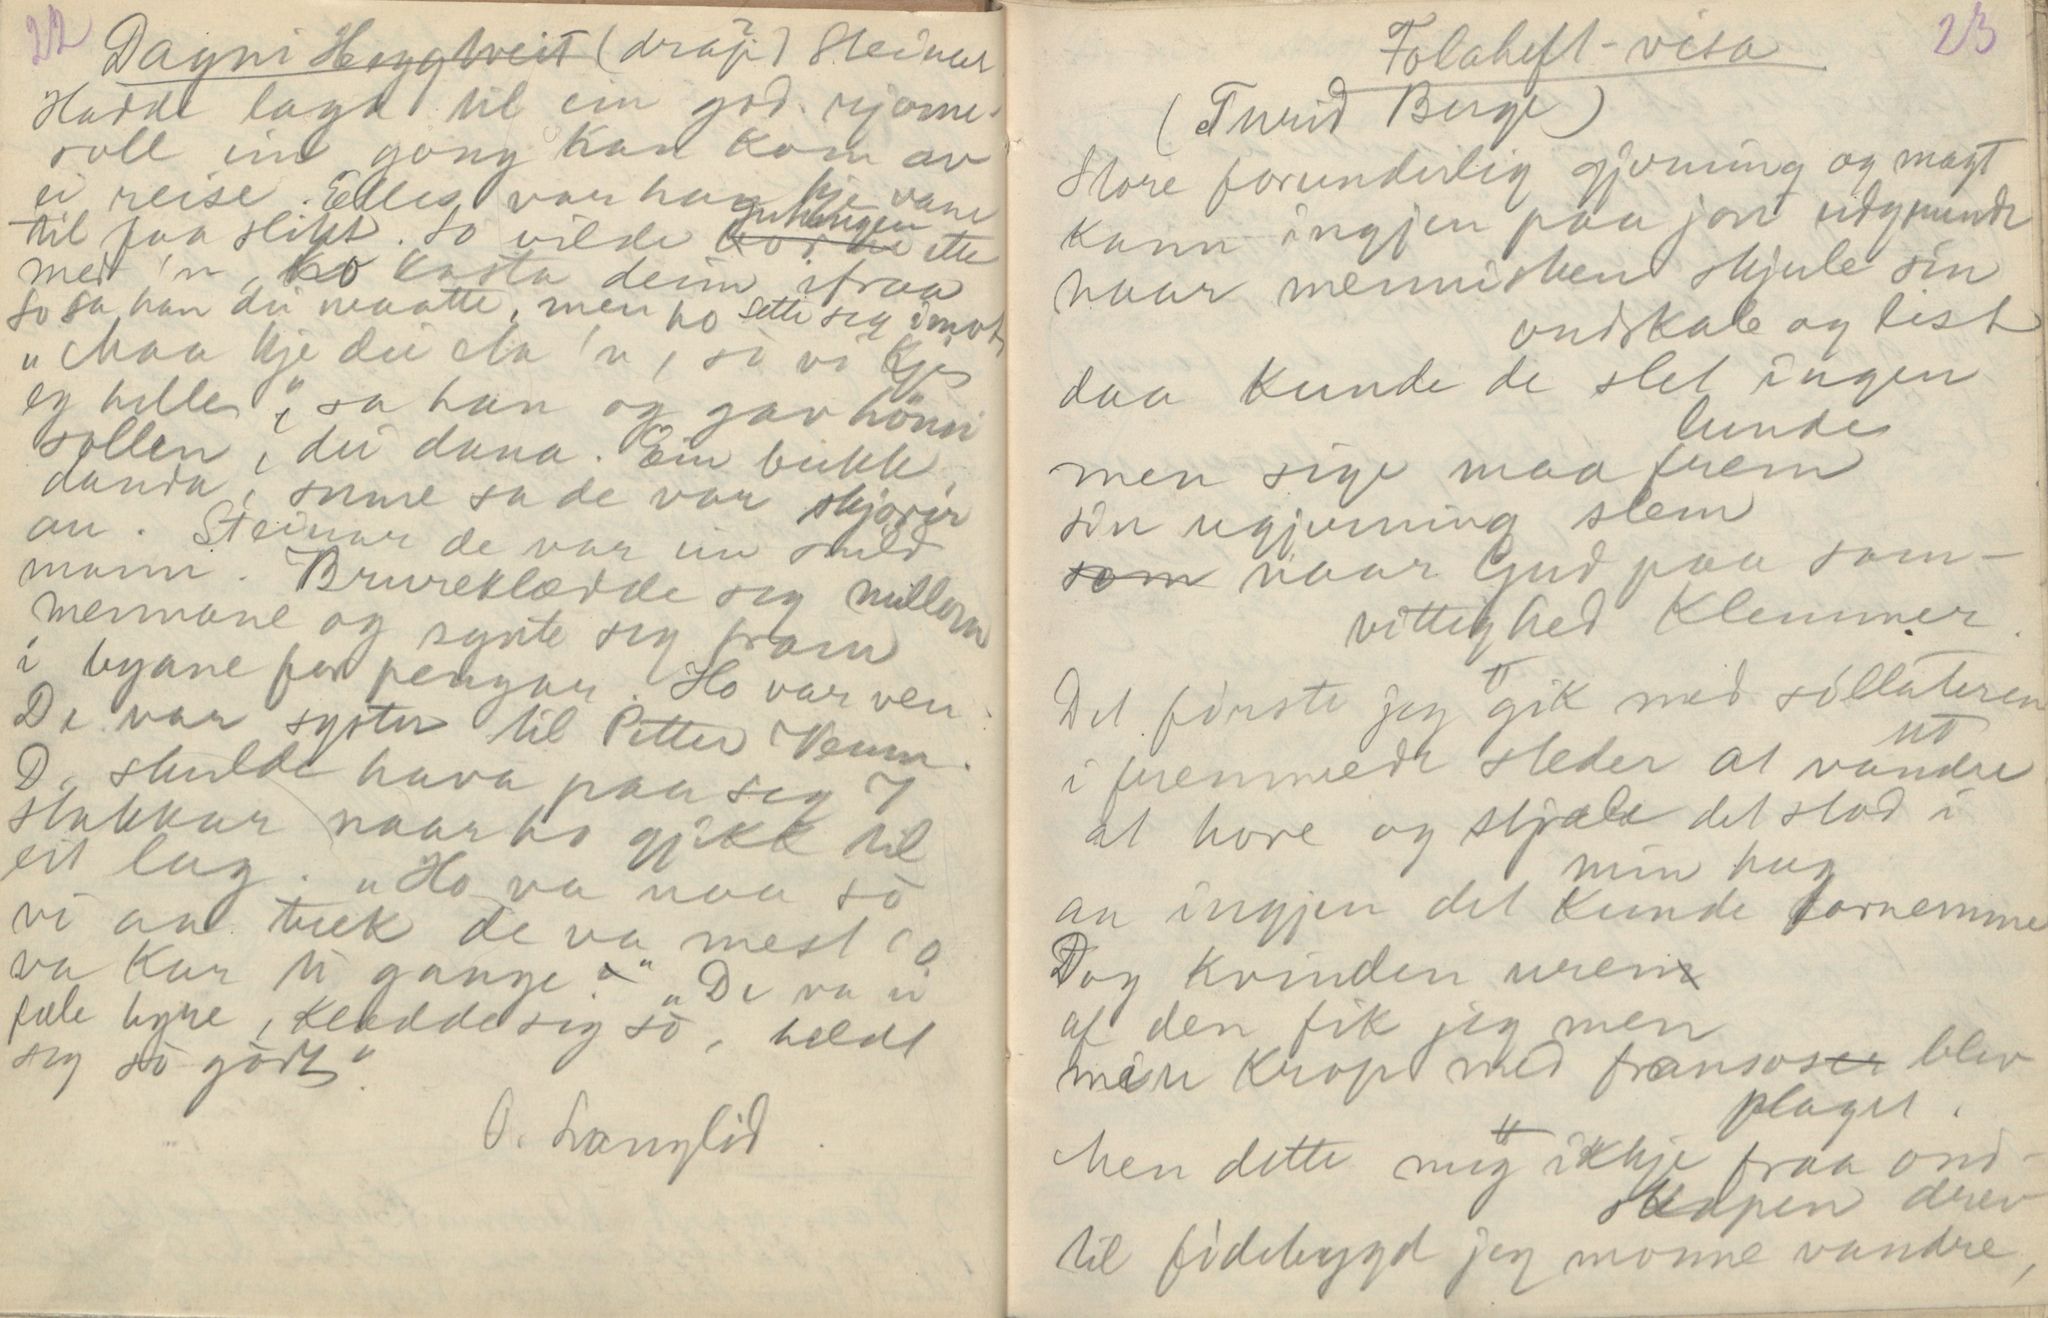 22
Dagni Heggtveit (dräp?) Steinar
Hadde lagd til ein god rjome-
soll ein gong han kom av
ei reise. Elles var han kje vane
til faa slikt. So vilde juklingen ette
med 'n, ho kasta deim ifraa
so sa han di maatte, men ho sette seg imot
"Maa kje di eta 'n, so vi kje
eg helle", sa han og gav hönni
sollen, di dana. Ein bikke
danda, sume sa de var skjorir
an. Steinar de var ein snild
mann. Brureklædde seg millom
mennane og synte seg fram
i byane for pengar. Ho var ven.
De var syster til Petter Veum.
D. skulde hava paa seg 7
stakkar naar ho gjekk til
eit lag. "Ho va naa so
vi aa tuk de va mest 'o
va kar ti gange." "De va ei
fæle byre, kledde seg so, heldt
seg so godt".
O. Langlid.
23
Folaheft-visa
(Turid Berge)
Store forunderlig gjerning og magt
kann ingjen paa jord udgrunde
naar mennisken skjule sin
ondskab og list
daa kunde de slet ingen
lunde
men sige maa frem
sin ugjerning slem
som naar Gud paa sam-
vittighed klemmer.
Det förste jeg gik med sollateren
ud
i fremmede steder at vandre
at hore og stjæle det stod i
min hug
an ingjen det kunde fornemme
Dog kvinden uren
af den fik jeg men
min krop med fransoser blev
plaget.
Men dette mig ikkje fraa ond-
skapen drev
til födebygd jeg monne vandre,